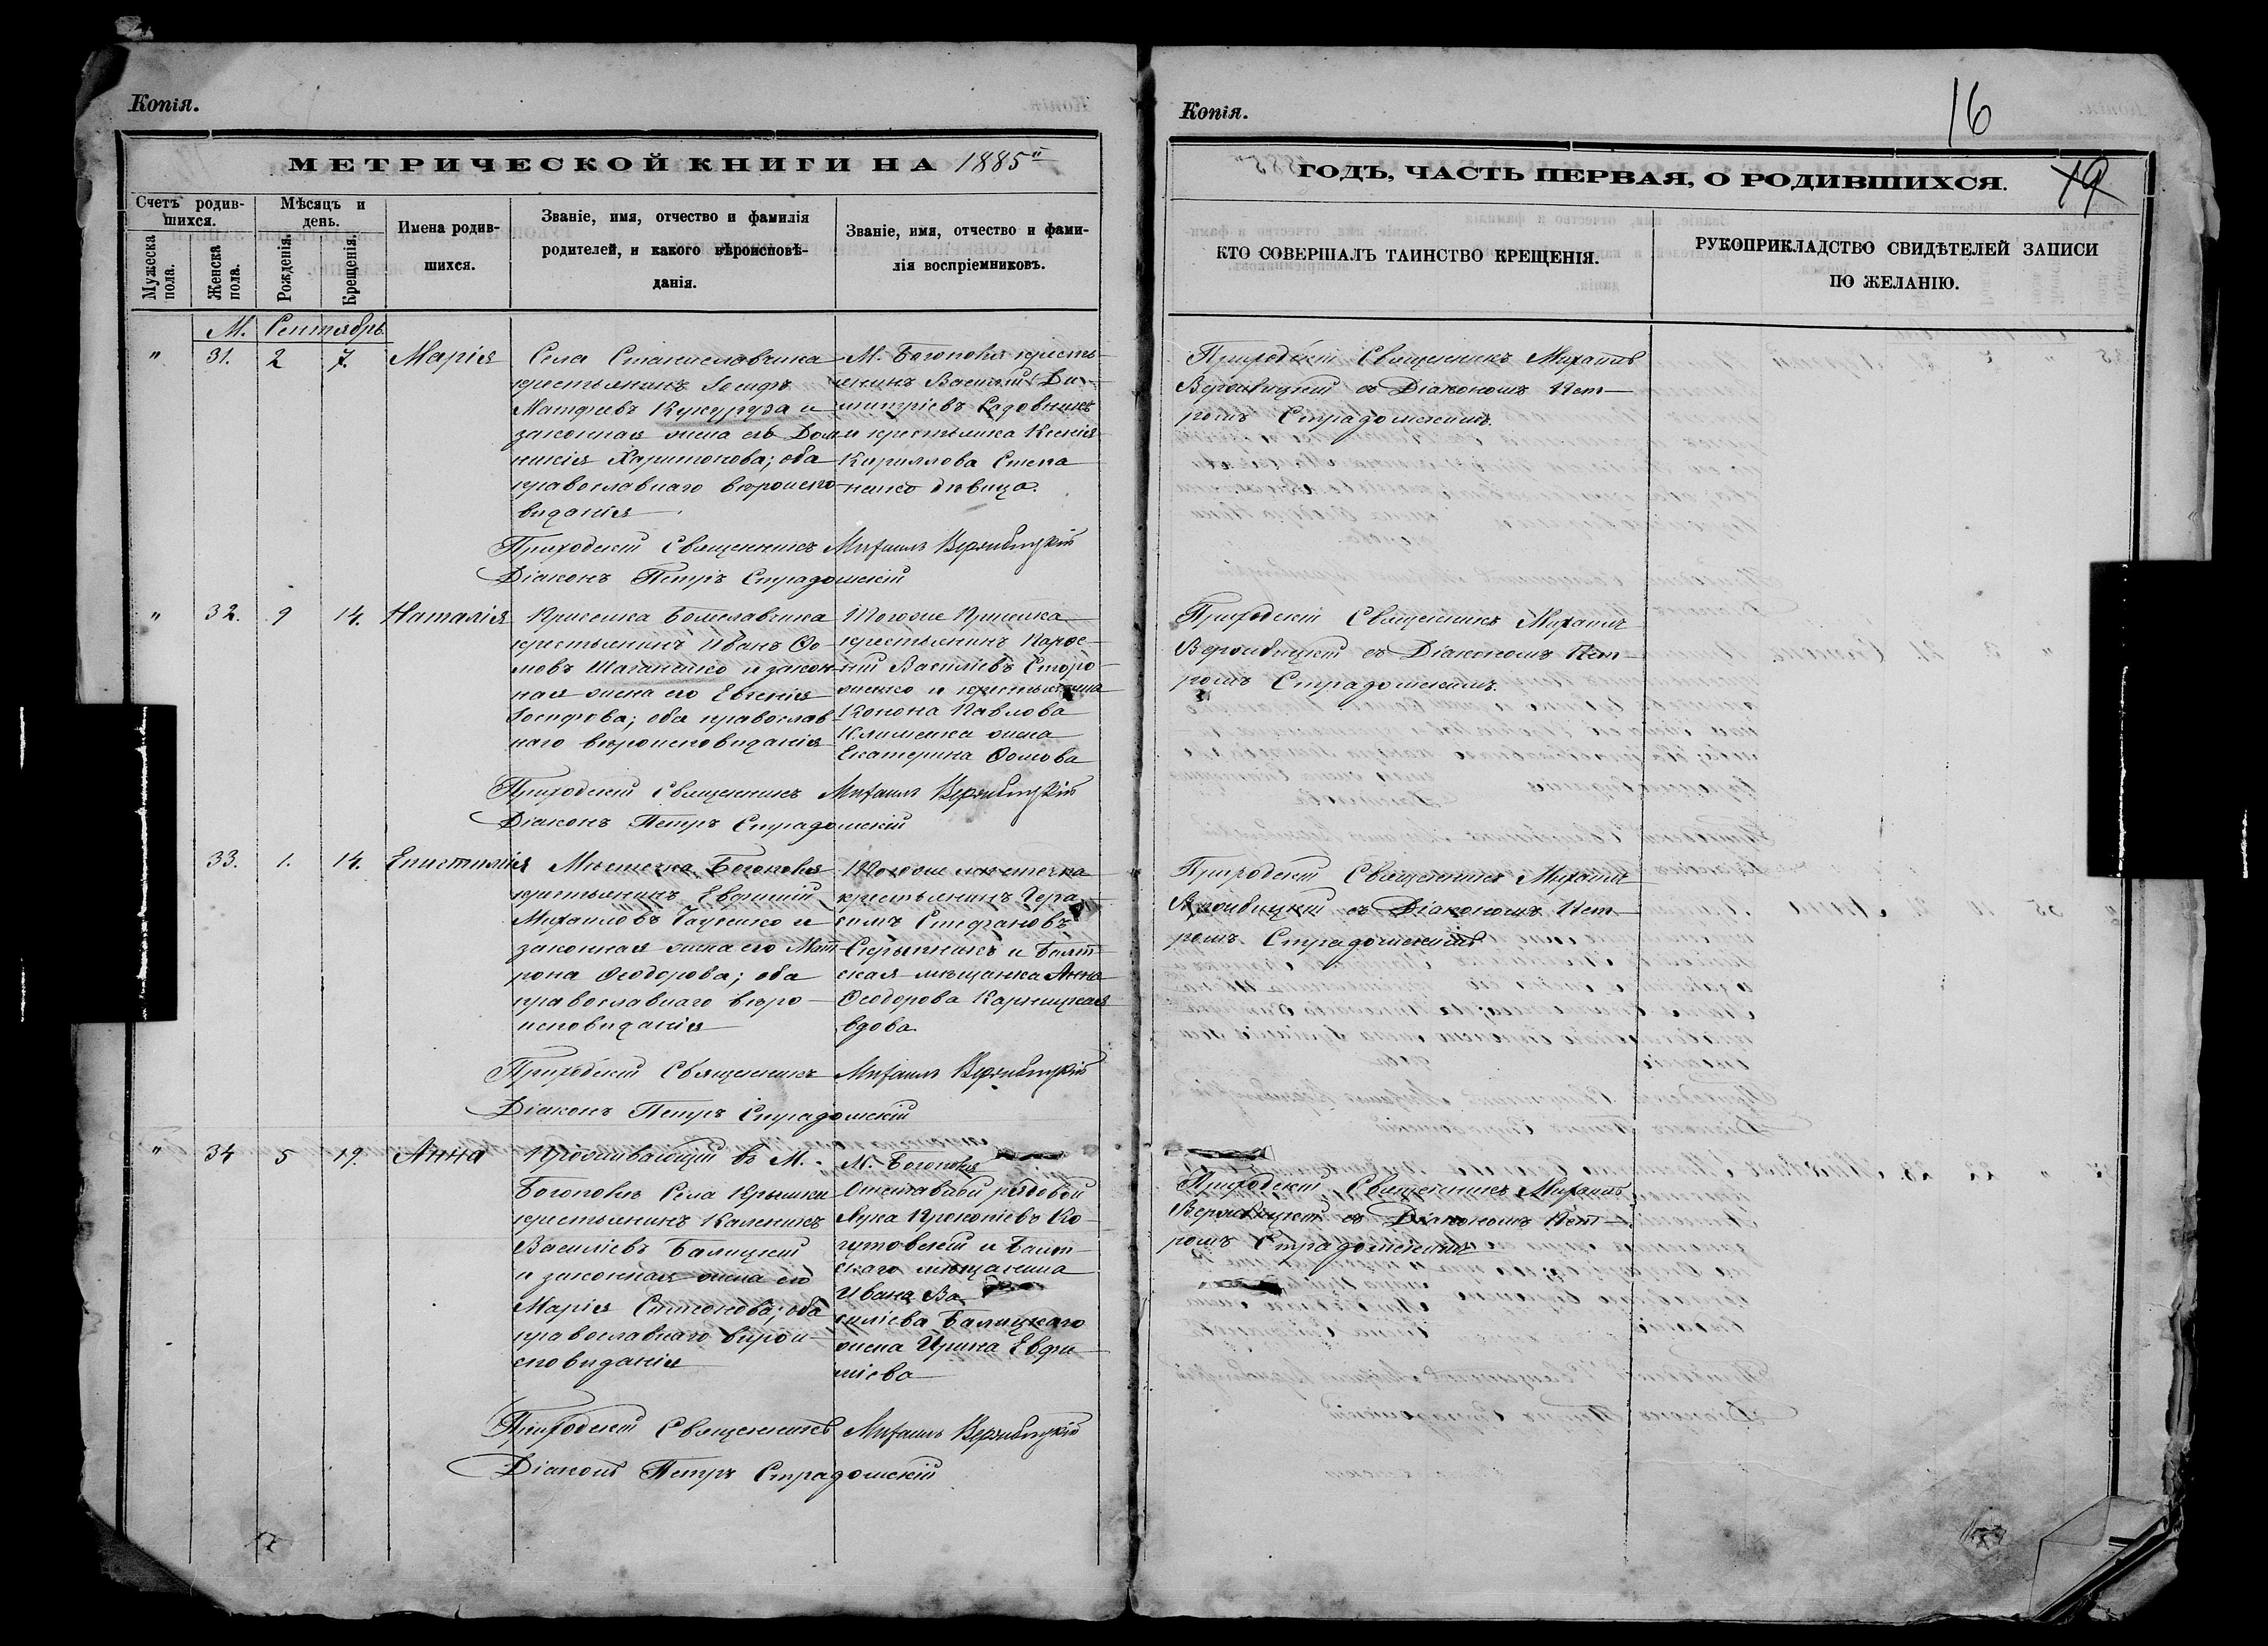 Копія.
МЕТРИЧЕСКОЙ КНИГИ НА 1885й
Счетъ родив-
шихся.
Мужеска
пола.
Женска
пола.
Мѣсяцъ и
день.
Рожденія.
Крещенія.
Имена родив-
шихся.
Званіе, имя, отчество и фамилія
родителей, и какого вѣроисповѣ-
данія.
Званіе, имя, отчество и фами-
лія воспріемниковъ.
М. Сентябрь
" 31. 2 7. Марія
Села Станиславчика
крестьянинъ Іосифъ
Матфеевъ Кукуруза и
законная жена его Дом-
никія Харитонова; оба
православнаго вѣроиспо-
вѣданія
М. Богополя кресть-
янинъ Василій Ди-
митріевъ Садовникъ
и крестьянка Ксенія
Кириллова Степа
ненко дѣвица.
Приходскій Священникъ Михаилъ Вержбицкій
Діаконъ Петръ Страдомскій
" 32. 9 14. Наталія
крестьянинъ Иванъ Ѳо-
мовъ Шаганенко и закон-
ная жена его Евгенія
Іосифова; оба православ-
наго вѣроисповѣданія
крестьянинъ
Василіевъ Сторо-
женко и крестьянина
Конона Павлова
Клименка жена
Екатерина Ѳомова
Приходскій Священникъ Михаилъ Вержбицкій
Діаконъ Петръ Страдомскій
33. 1. 14. Епистимія
Мѣстечка Богополя
крестьянинъ Евфимій
Михаиловъ и
законная жена его Мат-
рона Ѳеодорова; оба
православнаго вѣро-
исповѣданія
Тогоже мѣстечка
крестьянинъ Гера-
симъ Стефановъ
Скрыпникъ и Балт-
ская мѣщанка Анна
Ѳеодорова Карницкая
вдова.
Приходскій Священникъ Михаилъ Вержбицкій
Діаконъ Петръ Страдомскій
" 34 5 19. Анна
Проживающій въ М.
Богополѣ Села
крестьянинъ Калениkъ
Василіевъ Балицкій
и законная жена его
Марія Симонова; оба
православнаго вѣрои-
сповѣданія
М. Богополя
Отставной рядовой
Лука Прокопіевъ Ко-
гутовскій и Балт-
скаго мѣщанина
Ивана Ва-
силіева Балицкаго
жена Ирина Евфи-
міева
Приходскій Священникъ Михаилъ Вержбицкій
Діаконъ Петръ Страдомскій
17
Копія.
16
19
ГОДЪ, ЧАСТЬ ПЕРВАЯ, О РОДИВШИХСЯ.
КТО СОВЕРШАЛЪ ТАИНСТВО КРЕЩЕНІЯ.
РУКОПРИКЛАДСТВО СВИДѢТЕЛЕЙ ЗАПИСИ
ПО ЖЕЛАНІЮ.
Приходскій Священникъ Михаилъ
Вержбицкій съ Діакономъ Пет-
ромъ Страдомскимъ.
Приходскій Священникъ Михаилъ
Вержбицкій съ Діакономъ Пет-
ромъ Страдомскимъ.
Приходскій Священникъ Михаилъ
Вержбицкій съ Діакономъ Пет-
ромъ Страдомскимъ
Приходскій Священникъ Михаилъ
Вержбицкій съ Діакономъ Пет-
ромъ Страдомскимъ